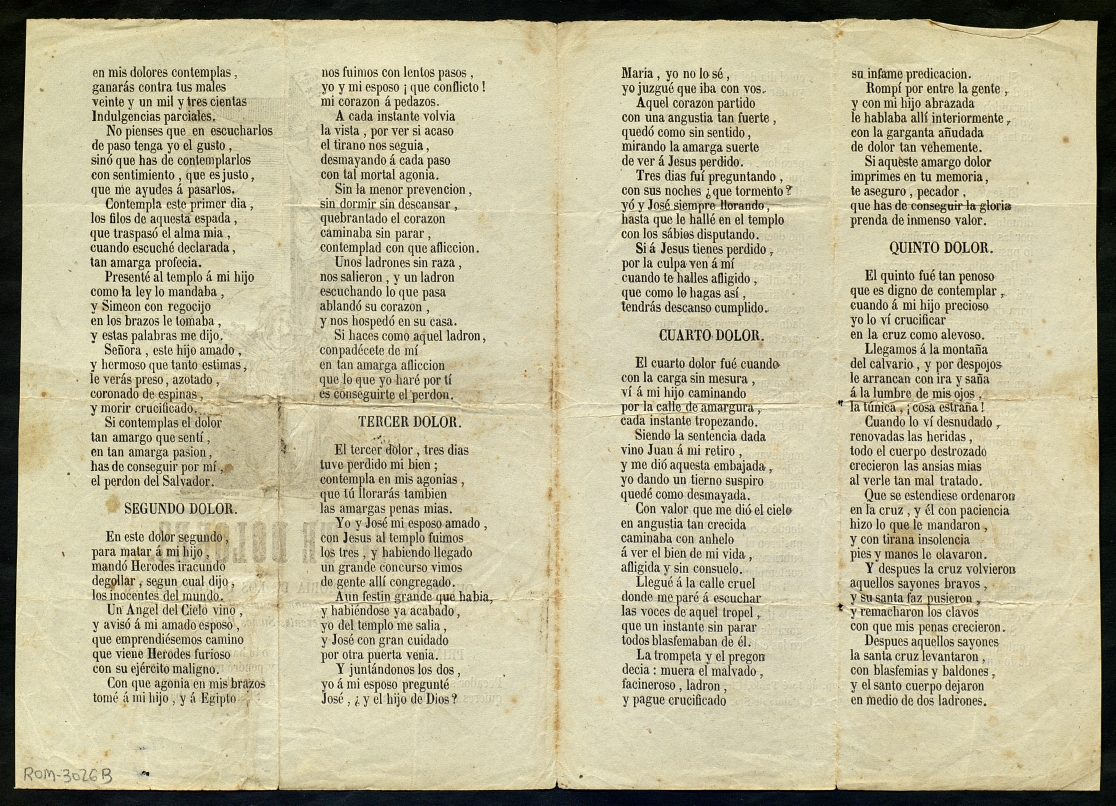 en mis dolores contemplas ,
ganarás contra tus males
veinte y un mil y tres cientas
Indulgencias parciales.
No pienses que en escucharlos
de paso tenga yo el gusto ,
sinó que has de contemplarlos
con sentimiento , que es justo ,
que me ayudes á pasarlos.
Contempla este primer dia ,
los filos de aquesta espada ,
que traspasó el alma mia ,
cuando escuché declarada ,
tan amarga profecia.
Presenté al templo á mi hijo
como la ley lo mandaba ,
y Simeon con regocijo
en los brazos le tomaba ,
y estas palabras me dijo.
Señora , este hijo amado ,
y hermoso que tanto estimas ,
le verás preso , azotado ,
coronado de espinas ,
y morir crucificado.
Si contemplas el dolor
tan amargo que sentí ,
en tan amarga pasion ,
has de conseguir por mí ,
el perdon del Salvador.
SEGUNDO DOLOR.
En este dolor segundo ,
para matar á mi hijo ,
mandó Herodes iracundo
degollar , segun cual dijo ,
los inocentes del mundo.
Un Angel del Cielo vino ,
y avisó á mi amado esposo ,
que emprendiésemos camino
que viene Herodes furioso
con su ejército maligno.
Con que agonia en mis brazos
tomé á mi hijo , y á Egipto
nos fuimos con lentos pasos ,
yo y mi esposo ¡ que conflicto !
mi corazon á pedazos.
A cada instante volvia
la vista , por ver si acaso
el tirano nos seguia ,
desmayando á cada paso
con tal mortal agonia.
Sin la menor prevencion ,
sin dormir sin descansar ,
quebrantado el corazon
caminaba sin parar ,
contemplad con que afliccion.
Unos ladrones sin raza ,
nos salieron , y un ladron
escuchando lo que pasa
ablandó su corazon ,
y nos hospedó en su casa.
Si haces como aquel ladron ,
conpadécete de mí
en tan amarga afliccion
que lo que yo haré por tí
es conseguirte el perdon.
TERCER DOLOR.
El tercer dolor , tres dias
tuve perdido mi bien ;
contempla en mis agonias ,
que tú llorarás tambien
las amargas penas mias.
Yo y José mi esposo amado ,
con Jesus al templo fuimos
los tres , y habiendo llegado
un grande concurso vimos
de gente allí congregado.
Aun festin grande que habia,
y habiéndose ya acabado ,
yo del templo me salia ,
y José con gran cuidado
por otra puerta venia.
Y juntándonos los dos ,
yo á mi esposo pregunté
José , ¿ y el hijo de Dios ?
Maria , yo no lo sé ,
yo juzgué que iba con vos.
Aquel corazon partido
con una angustia tan fuerte ,
quedó como sin sentido ,
mirando la amarga suerte
de ver á Jesus perdido.
Tres dias fuí preguntando ,
con sus noches ¿ que tormento ?
yó y José siempre llorando ,
hasta que le hallé en el templo
con los sábios disputando.
Si á Jesus tienes perdido ,
por la culpa ven á mí
cuando te halles afligido ,
que como lo hagas así ,
tendrás descanso cumplido.
CUARTO DOLOR.
El cuarto dolor fué cuando
con la carga sin mesura ,
ví á mi hijo caminando
por la calle de amargura ,
cada instante tropezando.
Siendo la sentencia dada
vino Juan á mi retiro ,
y me dió aquesta embajada ,
yo dando un tierno suspiro
quedé como desmayada.
Con valor que me dió el cielo
en angustia tan crecida
caminaba con anhelo
á ver el bien de mi vida ,
afligida y sin consuelo.
Llegué á la calle cruel
donde me paré á escuchar
las voces de aquel tropel ,
que un instante sin parar
todos blasfemaban de él.
La trompeta y el pregon
decia : muera el malvado ,
facineroso , ladron ,
y pague crucificado
su infame predicacion.
Rompí por entre la gente ,
y con mi hijo abrazada
le hablaba allí interiormente ,
con la garganta añudada
de dolor tan vehemente.
Si aquèste amargo dolor
imprimes en tu memoria ,
te aseguro , pecador ,
que has de conseguir la gloria
prenda de inmenso valor.
QUINTO DOLOR.
El quinto fué tan penoso
que es digno de contemplar ,
cuando á mi hijo precioso
yo lo ví crucificar
en la cruz como alevoso.
Llegamos á la montaña
del calvario , y por despojos
le arrancan con ira y saña
á la lumbre de mis ojos ,
la túnica , ¡ cosa estraña !
Cuando lo ví desnudado ,
renovadas las heridas ,
todo el cuerpo destrozado
crecieron las ansias mias
al verle tan mal tratado.
Que se estendiese ordenaron
en la cruz , y él con paciencia
hizo lo que le mandaron ,
y con tirana insolencia
pies y manos le clavaron.
Y despues la cruz volvieron
aquellos sayones bravos ,
y su santa faz pusieron ,
y remacharon los clavos
con que mis penas crecieron.
Despues aquellos sayones
la santa cruz levantaron ,
con blasfemias y baldones ,
y el santo cuerpo dejaron
en medio de dos ladrones.
ROM-3026B